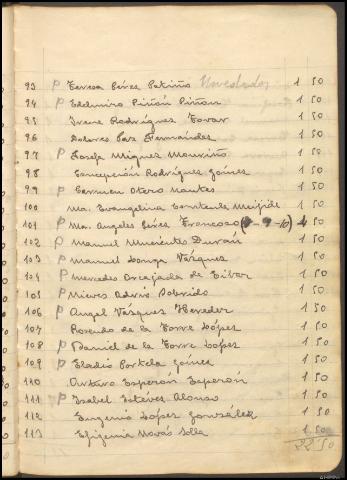 93 P Teresa Pérez Patiño 1 50
94 P Edelmiro Piñón Piñón 1 50
95 Irene Rodríguez Tovar 1 50
96 Dolores Paz Fernández 1 50
97 P Josefa Miguez Mouriño 1 50
98 Concepción Rodríguez Gómez 1 50
99 P Carmen Otero 1 50
100 Ma. Evangelina Meijide 1 50
101 P Ma. Angeles Pérez Troncoso
102 P Manuel Durán 1 50
103 P Manuel Vázquez 1 50
104 P Mercedes de 1 50
105 P Nieves Sobrido 1 50
106 P Angel Vázquez Hereder 1 50
107 Rosendo de la Torre López 1 50
108 P Daniel de la Torre López 1 50
109 P Eladio Portela Gómez 1 50
110 Arturo Esperón Esperón 1 50
111 P Isabel Estévez Alonso 1 50
112 Eugenio López González 1 50
113 Efigenia 1 50